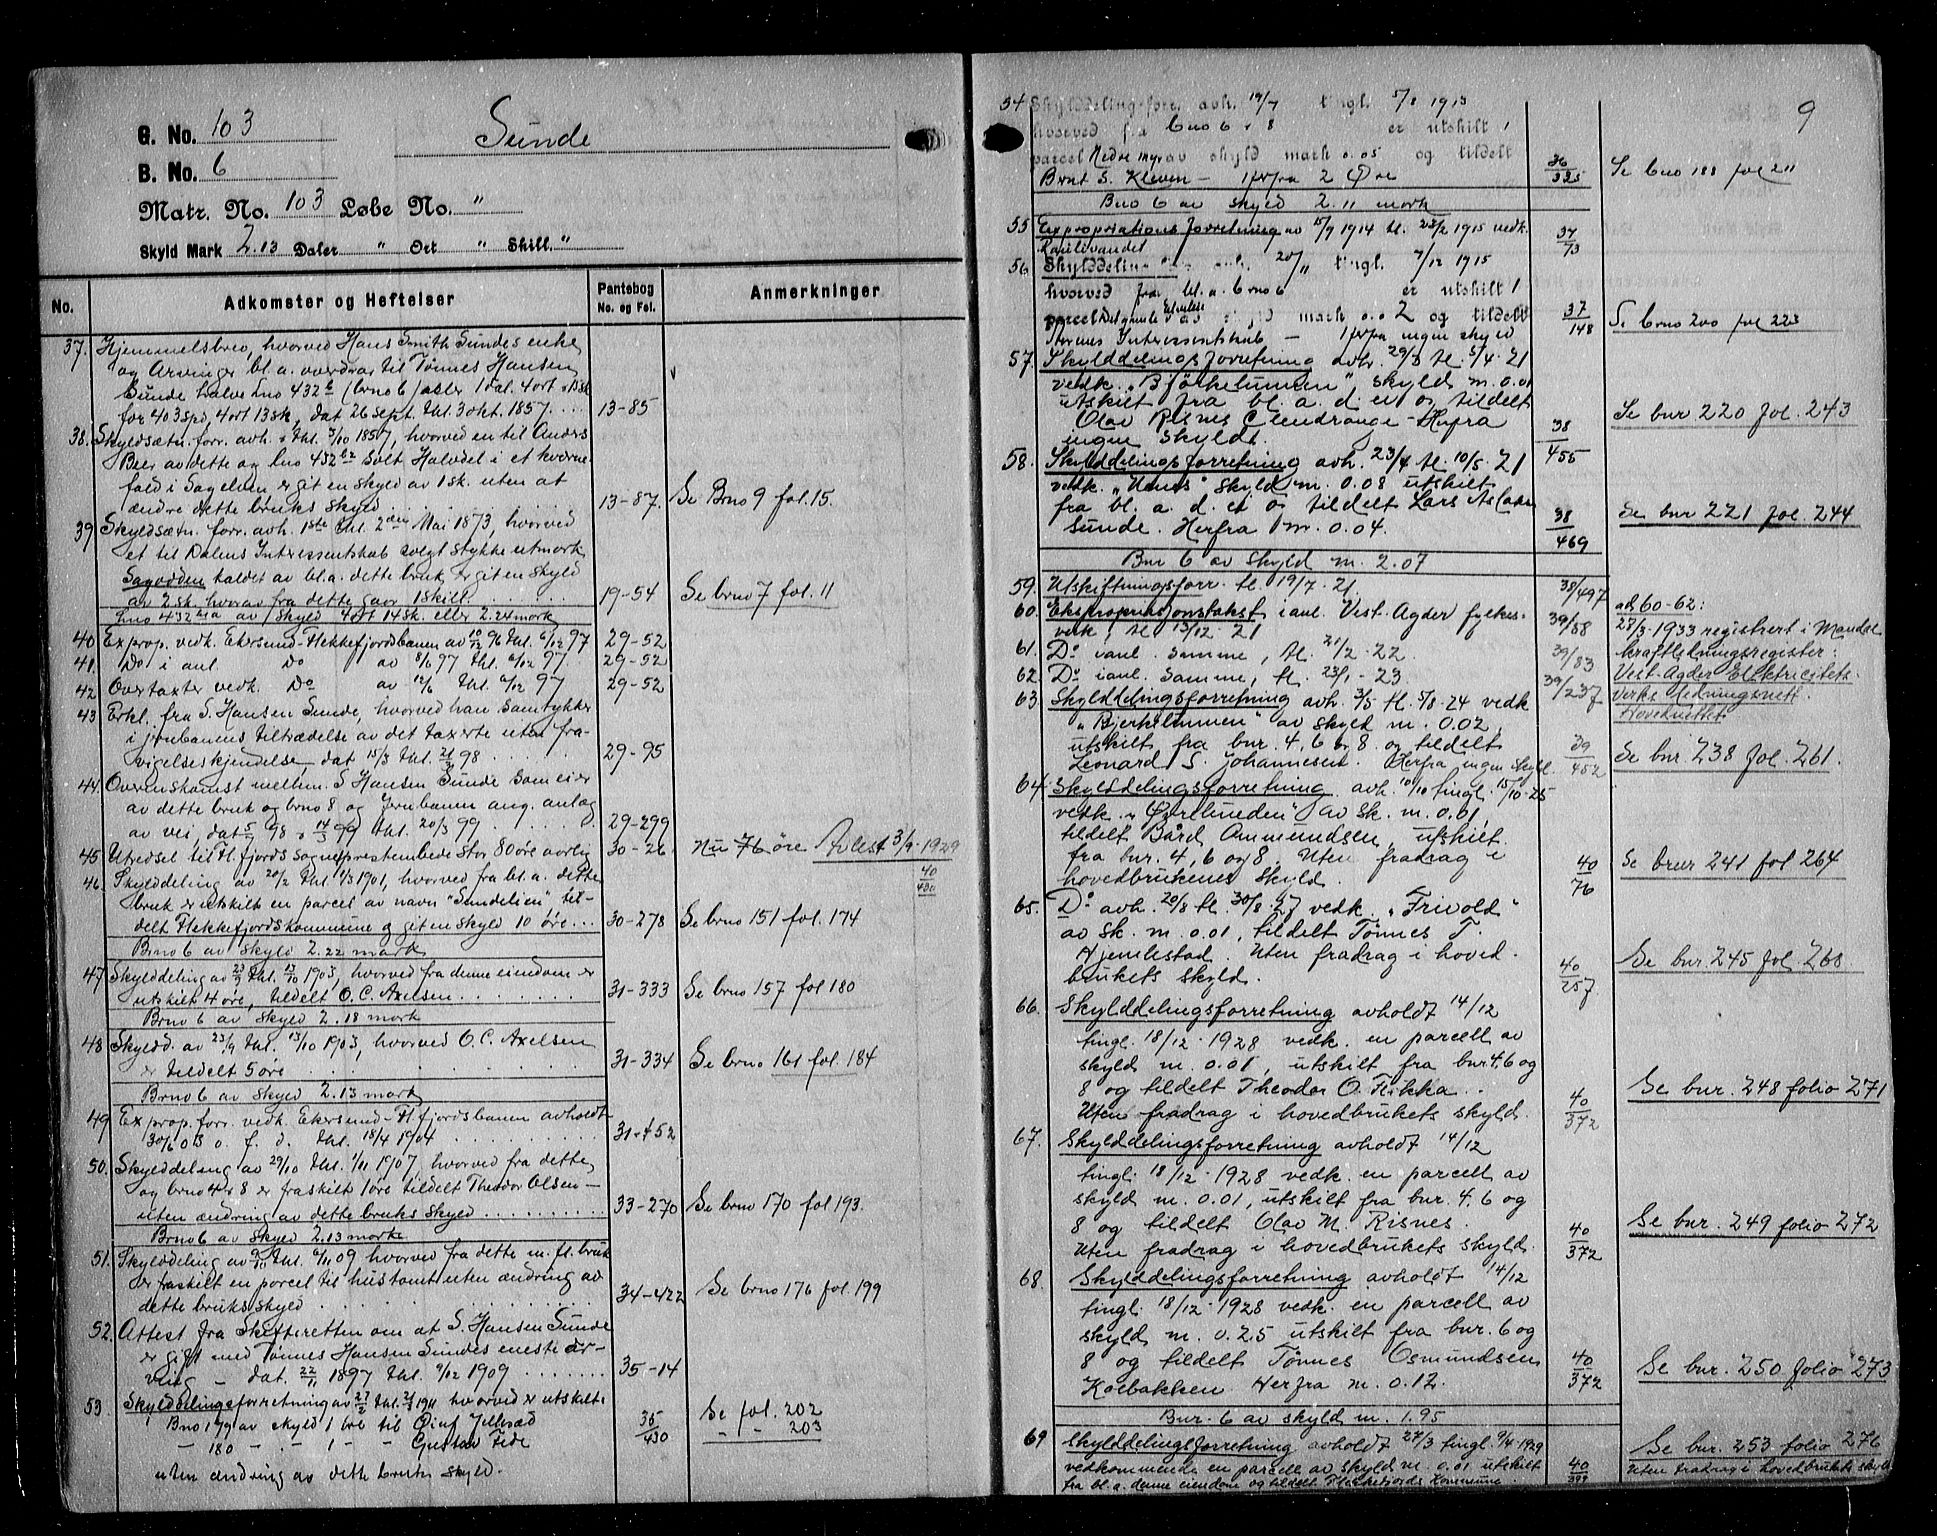 G. No. 103
Sunde
B. No. 6
Matr. No. 103 Løbe No. "
Skyld Mark 2.13 Daler " Ort " Skill. "
No.
Adkomster og Heftelser
Pantebog
No. og Fol.
Anmerkninger
37. Hjemmelsbrev, hvorved Hans Smith Sundes enke
og Arvinger bl.a. overdrar til Tønnes Hansen
Sunde halve Lno 432 b (brno 6) 1 dal. 4 ort
for 403 spd, 4 ort 13 sk, dat 26 sept. thl. 3 okt. 1857. 13-85
38. Skyldsætn. forr. avh. o thl. 3/10 1857, hvorved en til Anders
Beer av dette og lno 432 b2 solt Halvdel i et kværne-
fald i Sagelven er git en skyld av 1 sk. uten at
ændre dette bruks skyld 13-87. Se Brno 9 fol. 15.
39 Skyldsætn. forr. avh. 1ste thl. 2den Mai 1873, hvorved
et til Dalens Interessentskab solgt stykke utmark
Sagodden kaldet av bl.a. dette bruk, er git en skyld
av 2 sk. hvorav fra dette gaar 1 skill. 19-54 Se brno 7 fol. 11
Lno 432 b1a av skyld 4 ort 14 sk. eller 2.24 mark
40 Exprop. vedk. Ekersund-Flekkefjordbanen av 10/12 96 thl. 6/12 97 29-52
41. Do i anl. Do av 8/6 97 thl. 6/12 97. 29-52
42 Overtaxter vedk. Do av 12/6 thl. 6/12 97 29-52
43 Erkl. fra S. Hansen Sunde, hvorved han samtykker
i jernbanens tiltrædelse av det taxerte uten fra-
vigelseskjendelse dat 15/3 thl. 21/3 98 29-95
44. Overenskomst mellem S. Hansen Sunde som eier
av dette bruk og brno 8 og Jernbanen ang. anlæg
av vei, dat 5/ 98 o 14/3 99 thl. 20/3 99 29-299
45 Utredsel til Fl.fjords sogneprestembede stor 80 øre aarlig 30-26. Nu 76 øre Avlest 3/9-1929
40/430
46. Skylddeling av 20/2 thl. 1/3 1901, hvorved fra bl.a. dette
bruk er utskilt en parcel av navn "Sundelien" til-
delt Flekkefjords kommune og git en skyld 10 øre 30-278 Se brno 151 fol. 174
Brno 6 av skyld 2.22 mark
47. Skylddeling av 23/9 thl. 13/10 1903, hvorved fra denne eiendom er
utskilt 4 øre, tildelt O. C. Axelsen 31-333 Se brno 157 fol 180
Brno 6 av skyld 2.18 mark
48 Skyldd. av 23/9 thl. 13/10 1903, hvorved O. C. Axelsen
er tildelt 5 øre 31-334 Se brno 161 fol. 184
Brno 6 av skyld 2.13 mark
49 Exprop. forr. vedk. Ekersund-Fl.fjordsbanen avholdt
30/6 03 o. f. d. thl. 18/4 1904 31-452
50. Skylddeling av 29/10 thl. 1/11 1907, hvorved fra dette
og brno 4 o 8 er fraskilt 1 øre tildelt Theodor Olsen -
uten ændring av dette bruks skyld 33-270 Se brno 170 fol 193.
Brno 6 av skyld 2.13 mark
51. Skylddeling av thl. 6/11 09 hvorved fra dette m. fl. bruk
er fraskilt en parcel til hustomt uten ændring av
dette bruks skyld 34-422 Se brno 176 fol. 199
52. Attest fra Skifteretten om at S. Hansen Sunde
er gift med Tønnes Hansen Sundes eneste ar-
ving - dat. 22/11 1897 thl. 9/12 1909 35-14
53. Skylddelingsforretning av 27/2 thl. 1911 hvorved er utskilt
Bno 179 av skyld 1 øre til Jellesæd 35/430 Se fol. 202
- 180 - - 1 - - Gustav Fede " " 203
uten ændring av dette bruks skyld.
9
54 Skylddeling-forr. avh. 19/7 tingl. 5/8 1915
hvorved fra bno 6 o 8 er utskilt 1
parcel Nedre myr av skyld mark 0.05 og tildelt
Brnt S. Kleven - herfra 2 Øre 36/325 Se bno 188 fol 211
Bno 6 av skyld 2.11 mark
55 Expropriations forretning av 15/9 1914 tl. 23/2 1915 vedk.
Raulivandet 37/73
56 Skylddeling avh. 20/11 tingl. 7/12 1915
hvorved fra bl. a. bno 6 er utskilt 1
parcel Det gamle Elveleie av skyld mark 0.02 og tildelt
Stornes Interessentskab - herfra ingen skyld 37/148 Se bno 200 fol 223
57. Skylddelingsforretning avh. 29/3 tl. 5/4. 21
vedk. "Bjørkelunnen", skyld m. 0.01
utskilt fra bl. a. d. ei. o. tildelt
Olav Risnes Clendrange - Herfra
ingen skyldt. 38/455 Se bnr 220 fol. 243
58. Skylddelingsforretning avh. 23/4 tl. 10/5. 21
vedk. "Unnes" skyld m. 0.08 utskilt
fra bl. a. d. e. o. tildelt Lars Aslaksen
Sunde. Herfra m. 0.04. 38/469 Se bnr 221 fol. 244
Bnr 6 av skyld m. 2.07
59. Utskiftningsforr. tl. 19/7. 21. 38/497
60. Ekspropriasjonstakst i anl. Vest-Agder fylkes-
verk, tl 13/12. 21 39/58
61. Do ianl. samme, tl. 21/2. 22. 39/83
62. Do ianl. samme, tl. 23/1 - 23. 39/237
ad 60-62:
27/3-1933 registrert i Mandal
kraftledningsregister:
Vest-Agder Elektricitets-
verks ledningsnett.
Hovednettet
63. Skylddelingsforretning avh. 3/5 tl. 5/8. 24 vedk
"Bjerkelunnen" av skyld m. 0.02,
utskilt fra bnr. 4, 6 o 8 o. tildelt
Leonard S. Johannesen. Herfra ingen skyld. 39/452 Se bnr 238 fol. 261.
64 Skylddelingsforretning avh. 10/10 tingl. 15/10-25
vedk. "Ørelunden" av sk. m. 0.01,
tildelt Bård Ommundsen, utskilt
fra bnr. 4, 6 og 8. Uten fradrag i
hovedbrukenes skyld. 40/76 Se bnr 241 fol 264
65. Do avh. 20/8 tl. 30/8 27 vedk. "Frivold"
av sk. m. 0.01, tildelt Tønnes T.
Hjemlestad. Uten fradrag i hoved.
brukets skyld. 40/257. Se bnr. 245 fol. 268
66. Skylddelingsforretning avholdt 14/12
tingl. 18/12. 1928 vedk. en parcell av
skyld m. 0.01, utskilt fra bnr. 4.6 og
8 og tildelt Theodor O. Hikka.
Uten fradrag i hovedbrukets skyld. 40/372 Se bnr. 248 folio 271
67. Skylddelingsforretning avholdt 14/12
tingl. 18/12. 1928 vedk. en parcell av
skyld m. 0.01, utskilt fra bnr. 4.6 og
8 og tildelt Olav M. Risnes.
Uten fradrag i hovedbrukets skyld. 40/372 Se bnr. 249 folio 272
68. Skylddelingsforretning avholdt 14/12
tingl. 18/12. 1928 vedk. en parcell av
skyld m. 0.25 utskilt fra bnr. 6 og
8 og tildelt Tönnes Osmundsen
Kolbakken. Herfra m. 0.12. 40/372 Se bnr. 250 folio 273
Bnr. 6 av skyld m. 1.95
69 Skylddelingsforretning avholdt 27/3 tingl. 9/4 1929
vedkommende en parcell av skyld m. 0.01 utskilt
fra bl. a. denne eiendom og tildelt Flekkefjords Kommune. 40/399 Se bnr. 253 folio 276
Uten fradrag i hovedbrukets skyld